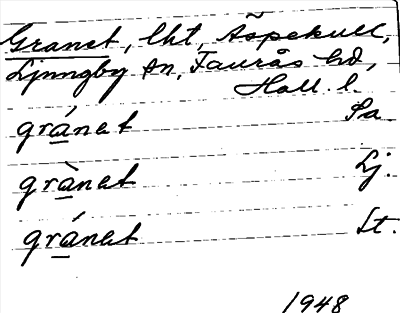 Granet, lht, Äspekull,
Ljungby sn, Faurås hd,
Hall. l.
gránet Sa
grànet Lj.
gránet St.
1948